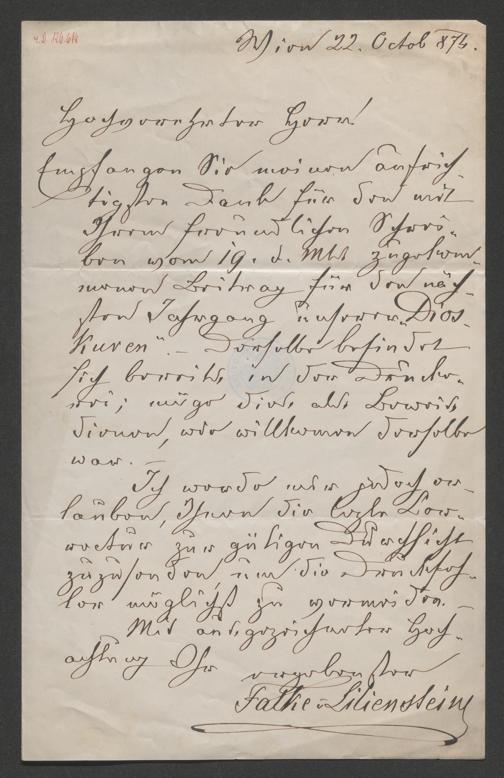 Wien 22. Octob 875.
Hochverehrter Herr!
Empfangen Sie meinen aufrich-
tigsten Dank für den mit
Ihrem freundlichen Schrei-
ben vom 19. d. Mts zugekom-
menen Beitrag für den näch-
sten Jahrgang unserer „Dios-
kuren“. – Derselbe befindet
sich bereits in der Drucke-
rei; möge dies als Beweis
dienen, wie willkomen derselbe
war. –
Ich werde mir jedoch er-
lauben, Ihnen die letzte Cor-
rectur zur gütigen Durchsicht
zuzusenden, um die Druckfeh-
ler möglichst zu vermeiden. –
Mit ausgezeichneter Hoch-
achtung Ihr ergebenster
Falke v Lilienstein